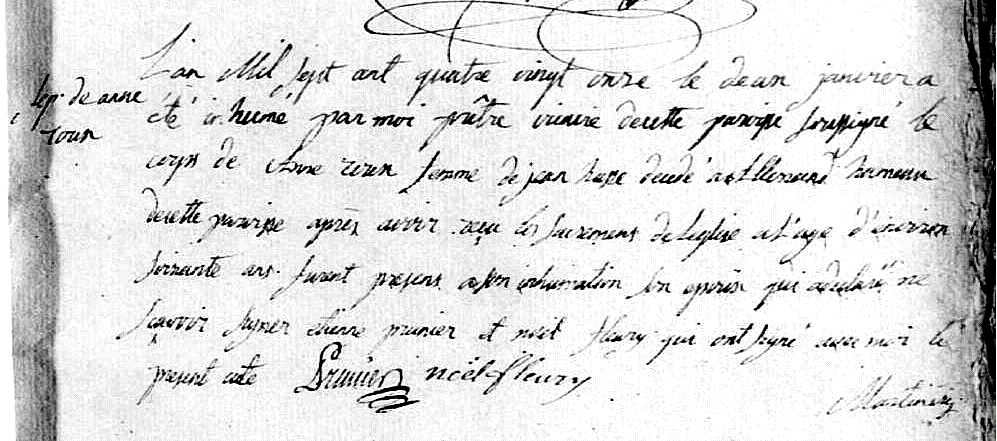 L'an Mil sept cent quatre vingt onze le deux janvier a
sep. de anne
été inhumé par moi prêtre vicaire de cette paroisse soussigné le
roux
corps de Anne roux femme de jean decedé a hameau
de cette paroisse après avoir reçu les sacremens de leglise a l'age d'environ
soixante ans. furent presens a son inhumation son epoux qui a declaré ne
sçavoir signer etienne prunier et noël fleury qui ont signé avec moi le
present acte Prunier noël fleury